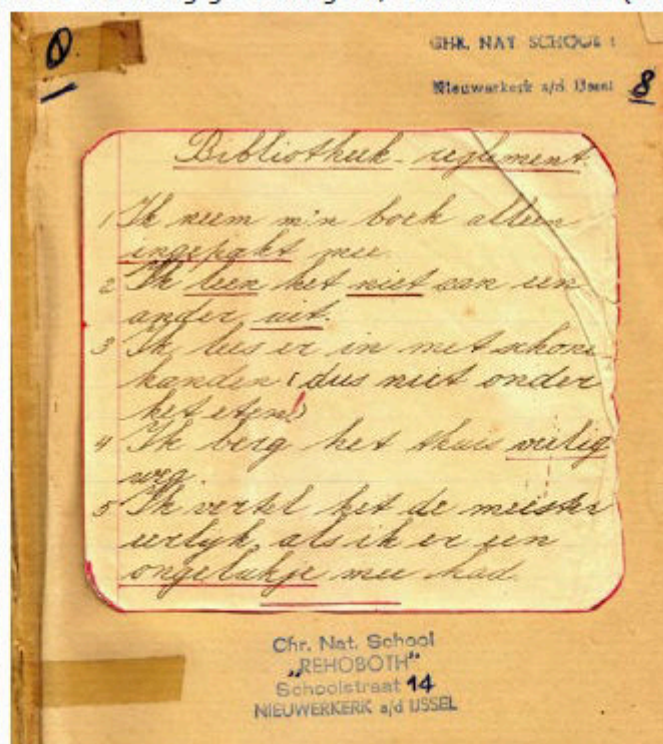 0.
CHR. NAT. SCHOOL
Nieuwerkerk a/d IJssel 8
Bibliotheek-reglement.
1 Ik neem m'n boek alleen
ingepakt mee.
2 Ik leen het niet aan een
ander uit.
3 Ik lees er in met schone
handen (dus niet onder
het eten!)
4 Ik berg het thuis veilig
weg.
5 Ik vertel het de meester
eerlyk, als ik er een
ongelukje mee had.
Chr. Nat. School
„REHOBOTH“
Schoolstraat 14
NIEUWERKERK a/d IJSSEL